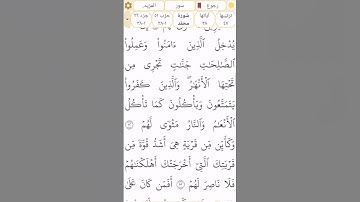 رجوع سور المزيد
ترتيبها آياتها سورة حزب ٥١ جزء ٢٦
٤٧ ٣٨ محمد
يُدْخِلُ ٱلَّذِينَ ءَامَنُوا۟ وَعَمِلُوا۟
ٱلصَّٰلِحَٰتِ جَنَّٰتٍ تَجْرِى مِن
تَحْتِهَا ٱلْأَنْهَٰرُ ۖ وَٱلَّذِينَ كَفَرُوا۟
يَتَمَتَّعُونَ وَيَأْكُلُونَ كَمَا تَأْكُلُ
ٱلْأَنْعَٰمُ وَٱلنَّارُ مَثْوًى لَّهُمْ ١٢
وَكَأَيِّن مِّن قَرْيَةٍ هِىَ أَشَدُّ قُوَّةً مِّن
قَرْيَتِكَ ٱلَّتِىٓ أَخْرَجَتْكَ أَهْلَكْنَٰهُمْ
فَلَا نَاصِرَ لَهُمْ ١٣ أَفَمَن كَانَ عَلَىٰ